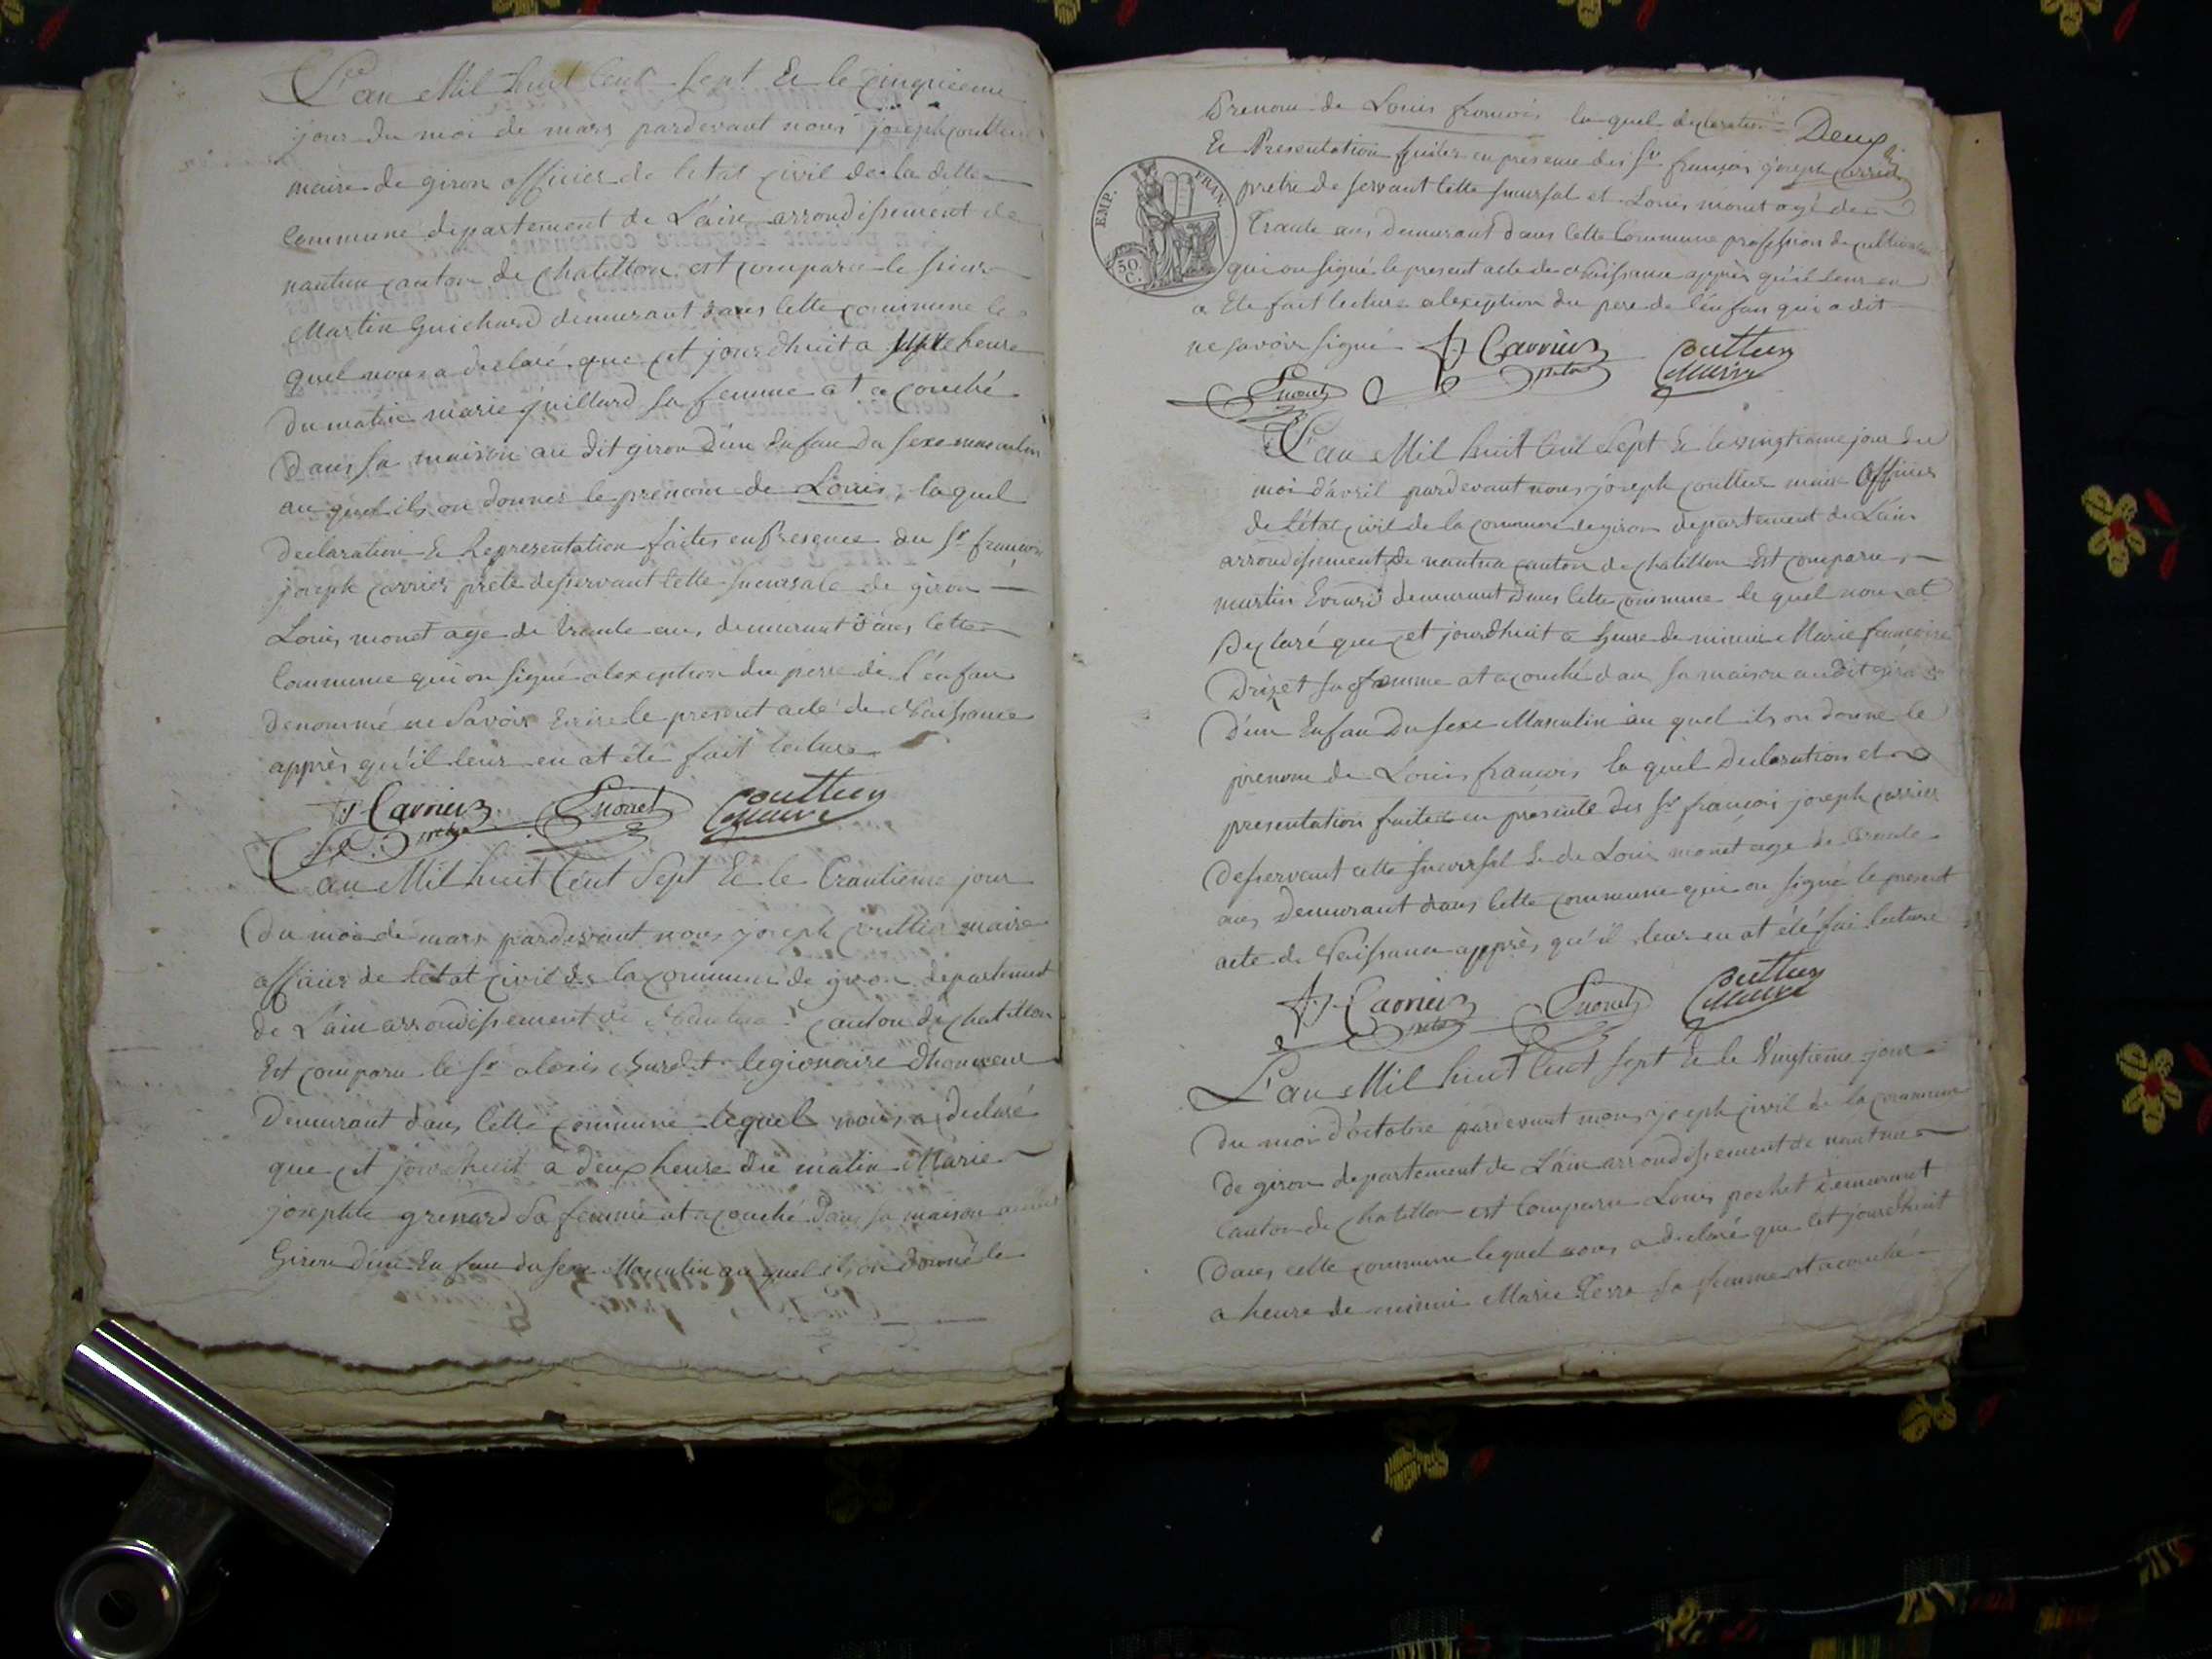 L'an Mil huit Cent Sept Et le Cinquieme
jour du moi de mars pardevant nous joseph coutier
maire de giron officier de letat civil de la ditte
Commune departement de L'ain arrondissement de
nantua canton de chatillon est comparu le sieur
Martin Guichard demeurant dans cette commune le
quel nous a declaré que cet jourdhuit a heure
du matin marie juillard sa femme at acouché
Dans sa maison au dit giron d'un enfan du sexe masculin
au quel ils on donner le prenom de Louis, laquel
declaration & Representation faites en Presence du Sr francois
joseph carrier prete desservant cette sucursale de giron
Louis monet age de trente ans demeurant dans cette
Commune qui on signé alexception du pere de l'enfan
denommé ne Savoir Ecrire le present acte de Naissance
apprès qu'il leur en at été fait lecture
fj Carrier prete Lmonet Couttier Maire
L'an Mil huit Cent Sept Et le Trantieme jour
Du moi de mars pardevant nous joseph couttier maire
officier de létat civil de la commune de giron departement
de L'ain arrondissement de Nantua canton de chatillon
Est comparu le Sr alexis legionaire dhonneur
Demeurant dans Cette commune lequel nous a declaré
que cet jourdhuit a deux heure du matin Marie
josephte grenard Sa femme at acouché Dans sa maison audit
Giron d'un Enfan du sexe Masculin au quel ils on donné le
Prenom de Louis francois laquel declaration Deux
Et Presentation faites en presence des Sr françois joseph carrier
pretre deservant cette sucursal et Louis monet agé de
Trante ans demeurant dans Cette Commune profession de cultivateur
qui on signé le present acte de Naissance apprès qu'il leur en
EMP. FRAN.
50. C.
a Eté fait lecture alexeption du pere de l'enfan qui a dit
ne savoir signé fj Carrier prete Couttier Maire
Lmonet
L'an Mil huit Cent Sept & le vingtieme jour du
moi d'avril pardevant nous joseph couttier maire Officier
de L'état civil de la commune de giron departement de L'ain
arrondissement de nantua canton de chatillon Est comparu
martin Evrard demeurant dans cette commune le quel nous at
Declaré que cet jourdhuit a heure de minui Marie francoise
Drizet sa femme at acouché dans sa maison audit giron
D'un Enfan Du sexe Masculin au quel ils on donne le
prenom de Louis francois laquel Declaration et
presentation faites en presence des Sr françois joseph carrier
Deservant cette sucursal & de Louis monet age de Trante
ans Demeurant dans Cette commune qui on signé le present
acte de Naissance apprès qu'il leur en at été fai lecture
fj Carrier prete Lmonet Couttier Maire
L'an Mil huit Cent Sept & le Vingtieme jour
Du moi d'octobre pardevant nous joseph civil de la commune
De giron departement de L'ain arrondissement de nantua
Canton de Chatillon est Comparu Louis pochet demeurant
Dans cette commune lequel nous a declaré que cet jourdhuit
a heure de minui Marie sa femme at acouché